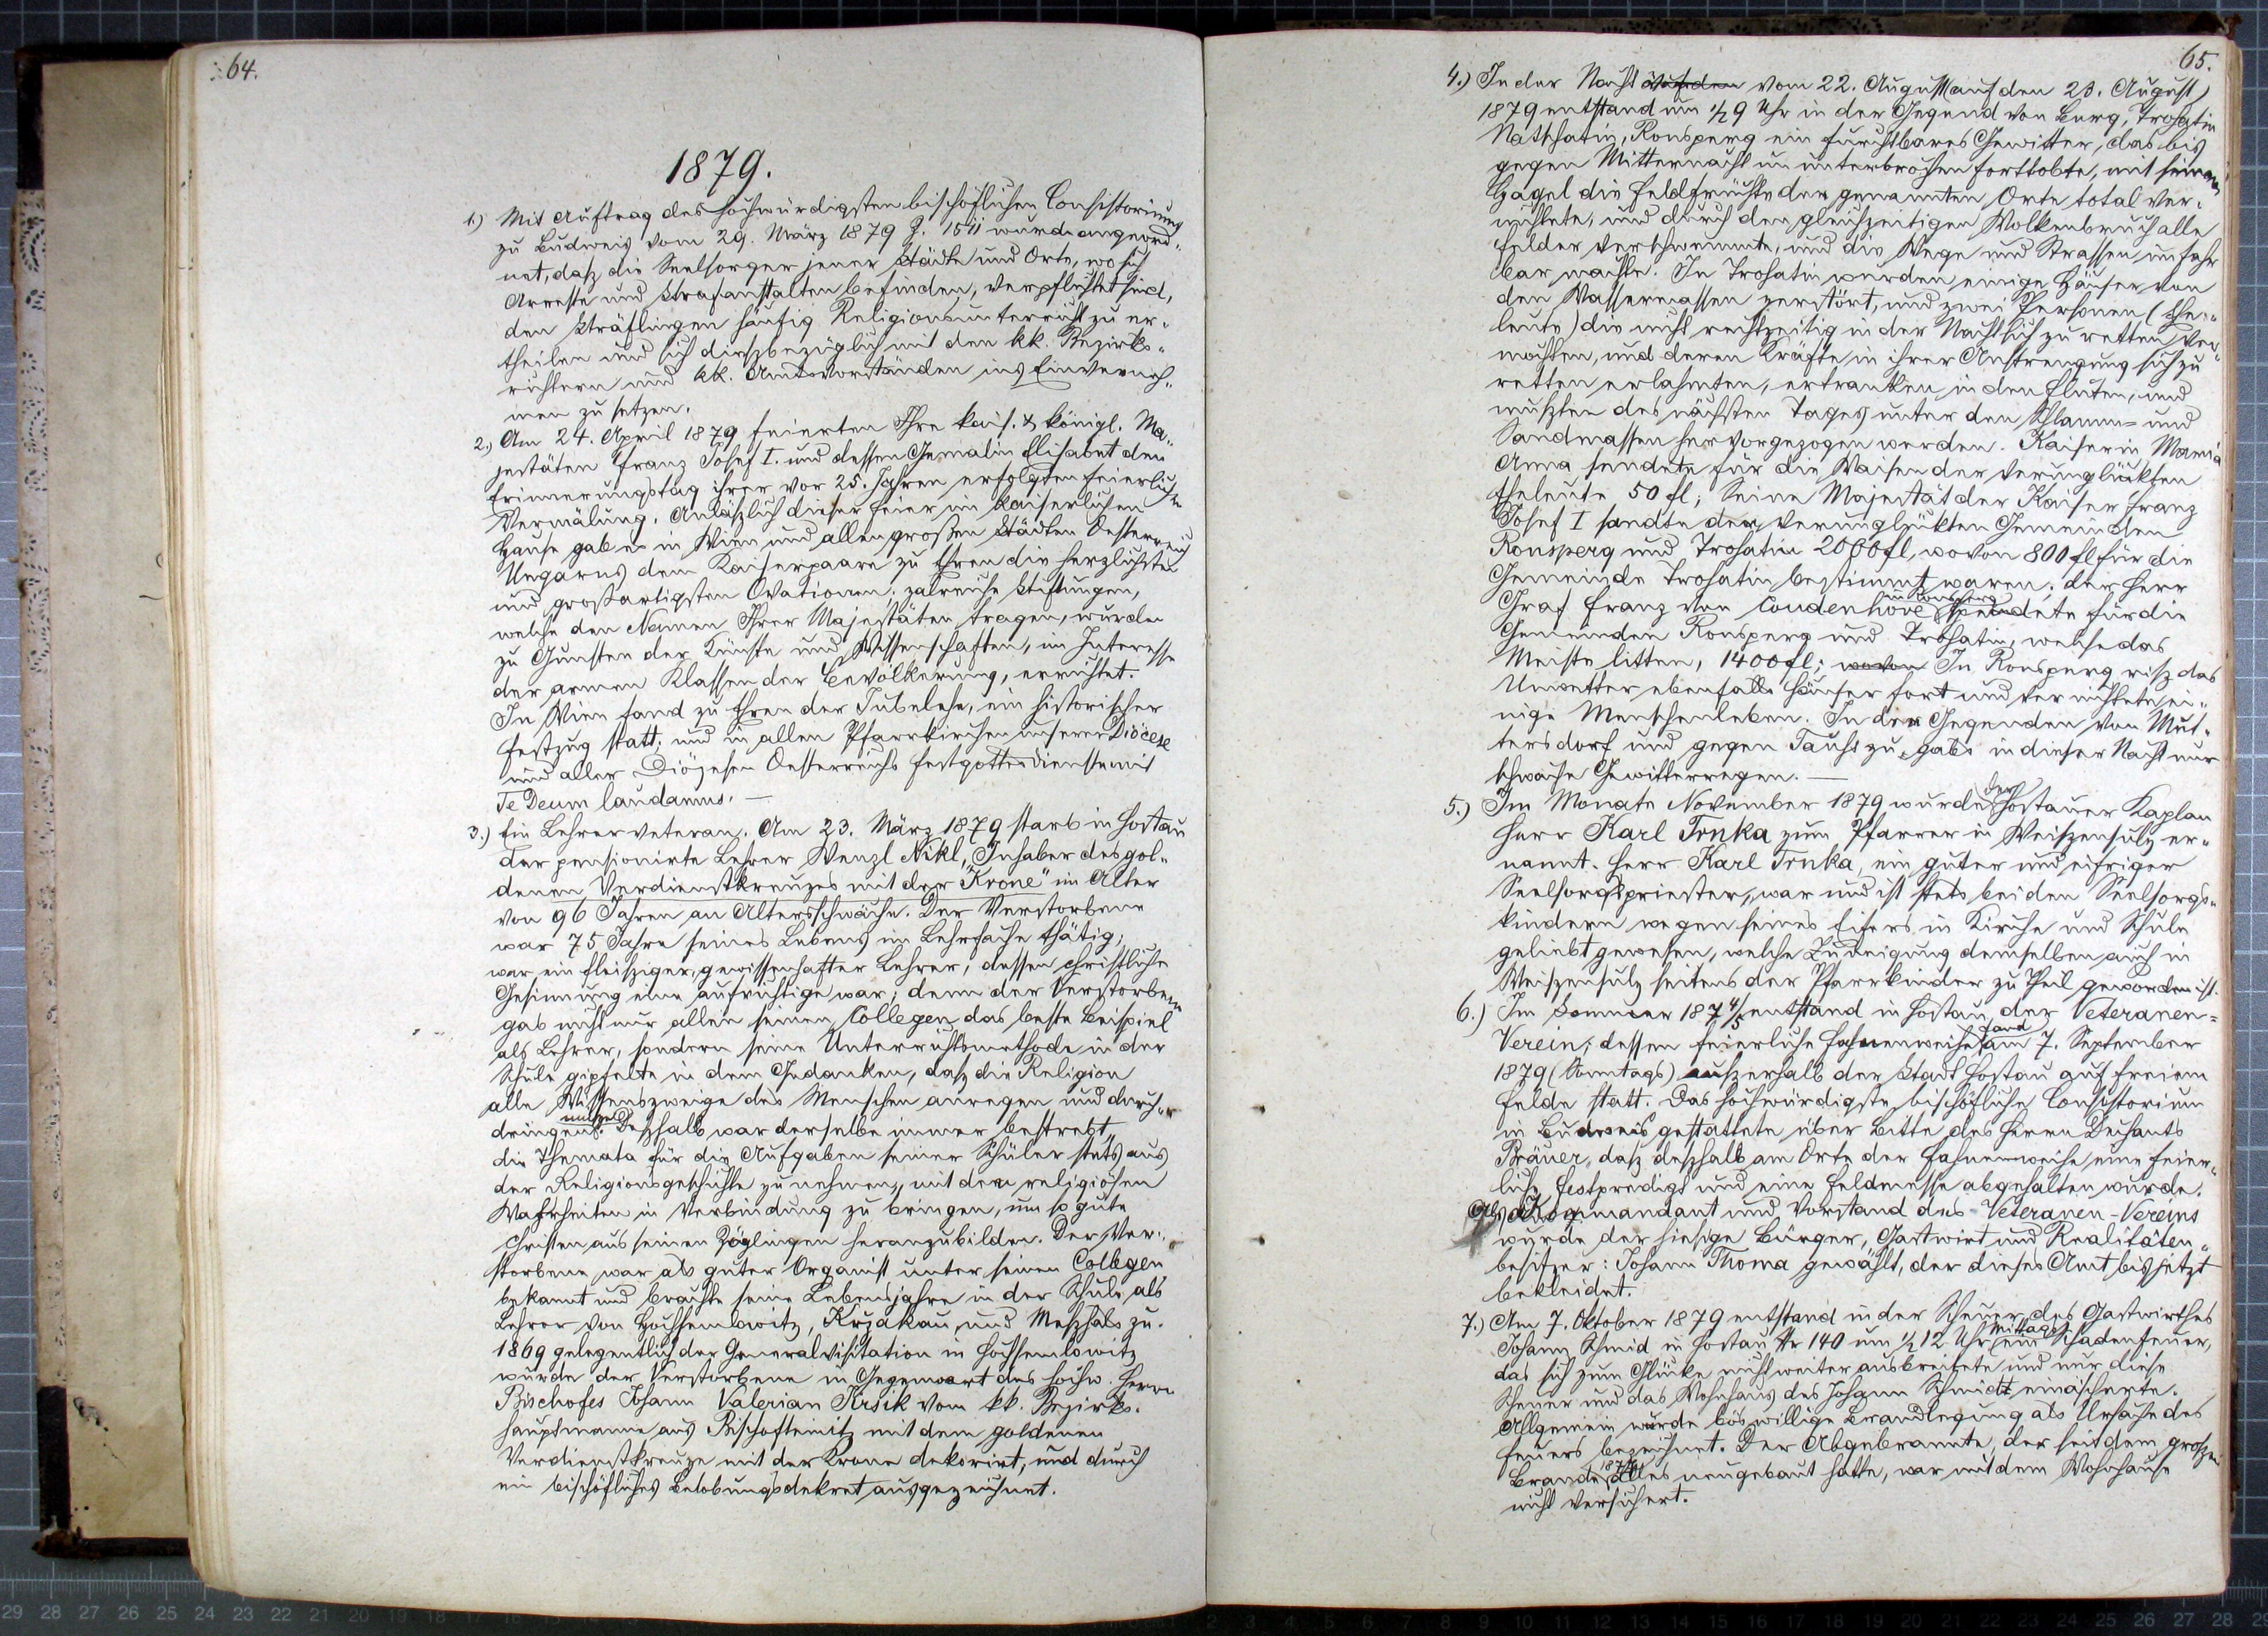 64.
1879.
1.) Mit Auftrag des hochwürdigsten bischöflichen Consistoriums
zu Budweis vom 29. März 1879 Z. 1511 wurde angeord„
net, dasz die Seelsorger jener Städte und Orte, wo sich
Arreste und Strafanstalten befinden, verpflichtet sind,
den Sträflingen häufig Religionsunterricht zu er„
theilen und sich dieszbezüglich mit den kk. Bezirks„
richtern und kk. Amtsvorständen ins Einverneh„
men zu setzen.
2.) Am 24. April 1879 feierten Ihre kais. & königl. Ma„
jestäten Franz Josef I. und dessen Gemalin Elisabet den
Erinnerungstag ihrer vor 25. Jahren erfolgten feierlichen
Vermälung. Anläszlich dieser Feier im kaiserlichen
Hause gab es in Wien und allen großen Städten Oesterreich
Ungarns dem Kaiserpaare zu Ehren die herzlichsten
und großartigsten Ovationen; zalreiche Stiftungen,
welche den Namen Ihrer Majestäten tragen, wurden
zu Gunsten der Künste und Wissenschaften, im Interesse
der armen Klassen der Bevölkerung, errichtet.
In Wien fand zu Ehren der Jubelehe, ein historischer
Festzug statt; und in allen Pfarrkirchen unserer Diöcese
und aller Diözesen Oesterreichs Festgottesdienste mit
Te Deum laudamus. —
3.) Ein Lehrerveteran. Am 23. März 1879 starb in Hostau
der pensionirte Lehrer Wenzl Nikl, „Inhaber des gol„
denen Verdienstkreuzes mit der Krone" im Alter
von 96 Jahren an Altersschwäche. Der Verstorbene
war 75 Jahre seines Lebens im Lehrfache thätig;
war ein fleisziger, gewissenhafter Lehrer, dessen christliche
Gesinnung eine aufrichtige war, denn der Verstorbene
gab nicht nur allen seinen Collegen das beste Beispiel
als Lehrer, sondern seine Unterrichtsmethode in der
Schule gipfelte in dem Gedanken, dasz die Religion
alle Wissenszweige des Menschen anregen und durch„
dringen müsze. Deszhalb war derselbe immer bestrebt,
die Themata für die Aufgaben seiner Schüler stets aus
der Religionsgeschichte zu nehmen, mit den religiösen
Wahrheiten in Verbindung zu bringen, um so gute
Christen aus seinen Zöglingen heranzubilden. Der Ver„
storbene war als guter Organist unter seinen Collegen
bekannt und brachte seine Lebensjahre in der Schule als
Lehrer von Hochsemlowitz, Krzakau und Meszhals zu.
1869 gelegentlich der Generalvisitation in Hochsemlowitz
wurde der Verstorbene in Gegenwart des hochw. Herrn
Bischofes Johann Valerian Jirsik vom kk. Bezirks„
hauptmanne aus Bischofteinitz mit dem goldenen
Verdienstkreuze mit der Krone dekorirt, und durch
ein bischöfliches Belobungsdekret ausgezeichnet.
65.
4.) In der Nacht vom 22. August (auf den 23. August)
1879 entstand um ½ 9 Uhr in der Gegend von Berg, Trohatin
Natschatin, Ronsperg ein furchtbares Gewitter, das bis
gegen Mitternacht un unterbrochen forttobte, mit seinem
Hagel die Feldfrüchte der genannten Orte total ver„
nichtete, und durch den gleichzeitigen Wolkenbruch alle
Felder verschwemmte, und die Wege und Strassen unfahr
bar machte. In Trohatin wurden einige Häuser von
den Wassermassen zerstört, und zwei Personen (Ehe„
leute) die nicht rechtzeitig in der Nacht sich zu retten ver„
mochten, und deren Kräfte in ihrer Anstrengung sich zu
retten erlahmten, ertranken in den Fluten, und
muszten des nächsten Tages unter den Schlamm- und
Sandmassen hervorgezogen werden. Kaiserin Maria
Anna sendete für die Waisen der verunglückten
Eheleute 50 fl; Seine Majestät der Kaiser Franz
Josef I sandte den verunglückten Gemeinden
Ronsperg und Trohatin 2000 fl, wovon 800 fl für die
Gemeinde Trohatin bestimmt waren; der Herr
Graf Franz von Coudenhove in Ronsperg spendete für die
Gemeinden Ronsperg und Trohatin, welche das
Meiste litten, 1400 fl; wovon In Ronsperg risz das
Unwetter ebenfalls Häuser fort und vernichtete ei„
nige Menschenleben. In den Gegenden von Mut„
tersdorf und gegen Taus zu, gab's in dieser Nacht nur
schwache Gewitterregen. —
5.) Im Monate November 1879 wurde der Hostauer Kaplan
Herr Karl Trnka zum Pfarrer in Weiszensulz er„
nannt. Herr Karl Trnka, ein guter und eifriger
Seelsorgspriester, war und ist stets bei den Seelsorgs„
kindern wegen seines Eifers in Kirche und Schule
geliebt gewesen, welche Zuneigung demselben auch in
Weiszensulz seitens der Pfarrkinder zu Theil geworden ist.
6.) Im Sommer 1874/5 entstand in Hostau der Veteranen=
Verein; dessen feierliche Fahnenweihe fand am 7. September
1879 (Sonntags) auszerhalb der Stadt Hostau auf freiem
Felde statt. Das hochwürdigste bischöfliche Consistorium
in Budweis gestattete über Bitte des Herrn Dechants
Bräuer, dasz deszhalb am Orte der Fahnenweihe eine feier„
liche Festpredigt und eine Feldmesse abgehalten wurde.
Als Kommandant und Vorstand des Veteranen-Vereins
wurde der hiesige Bürger, Gastwirt und Realitäten„
besitzer: Johann Thoma gewählt, der dieses Amt bis jetzt
bekleidet.
7.) Am 7. Oktober 1879 entstand in der Scheuer des Gastwirthes
Johann Schmid in Hostau Nr 140 um ½ 12 Uhr Mittags ein Schadenfeuer,
das sich zum Glücke nicht weiter ausbreitete und nur diese
Scheuer und das Wohnhaus des Johann Schmidt einäscherte.
Allgemein wurde böswillige Brandlegung als Ursache des
Feuers bezeichnet. Der Abgebrannte, der seit dem groszen
Brande alles neugebaut hatte, war mit dem Wohnhause
nicht versichert.